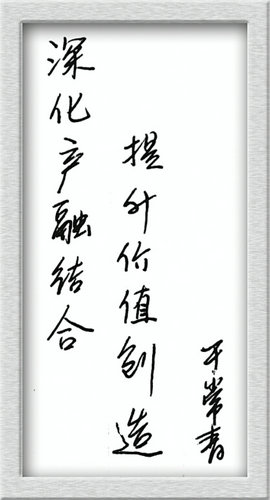 深化产融结合
提升价值创造
于常青